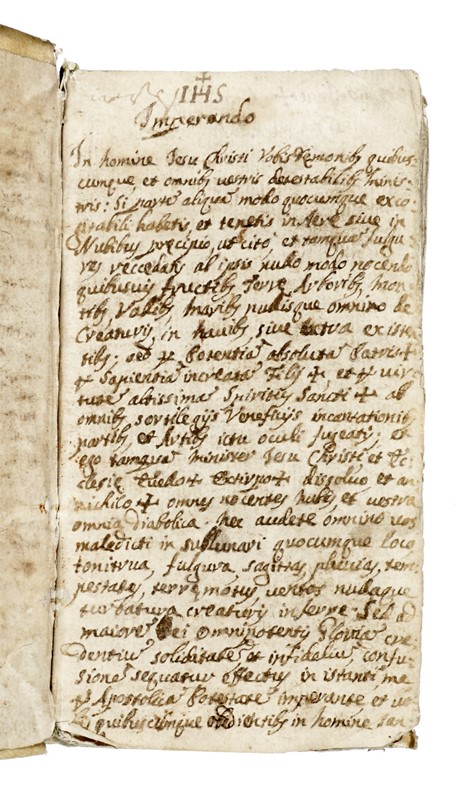 IHS
Imperando
In homine Jesu Christi Vobis Demonibȝ quibus-
cumque, et omnibȝ vestris detestabilibȝ minis-
tris: Si parte aliqua modo quocumque exco-
gitabili habetis, et tenetis in Aere sive in
Nubibus precipio, ut cito, et tamqua fulgu
res recedatis ab ipsis nullo modo nocendo
quibusvis fructibȝ Terre Arboribȝ, mon
tibȝ Vallibȝ, maribȝ nullisque omnino de
Creaturis, in navibȝ sive extra existe
tibȝ; sed Potentia absoluta Patris ✝
Sapientia increata Filij ✝ et vir
tute altissima Spiritus Sancti ✝ ab
omnibȝ sortilegijs Veneficijs incantationibȝ
partibȝ, et Artibȝ ictu oculi fugeatis; et
ego tamqua minister Jesu Christi et Ec
clesie ✝ ✝ dissolvo et an
nichilo ✝ omnes nocentes nubes, et vestra
omnia Diabolica. Nec audete omnino vos
maledicti in sullunari quocumque loco
tonitrua, fulgura, sagitas, pluvias, tem
pestates, terre motus, ventos nullaque
turbatura creaturis inferre. Sed ad
maiore Dei Omnipotentis Gloria cre
dentiu soliditate et infideliu, confu-
sione sequatur effectus in istanti me
Apostolica Potestate imperante et vo
bis quibuscunque obedientibȝ in homine san